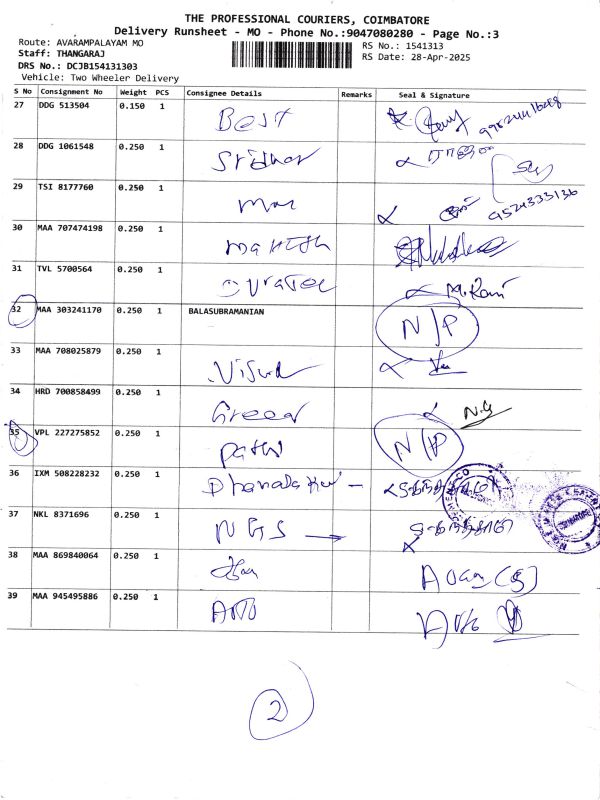 THE PROFESSIONAL COURIERS, COIMBATORE
Delivery Runsheet - MO - Phone No.:9047080280 - Page No.:3
Route: AVARAMPALAYAM MO
RS No.: 1541313
Staff: THANGARAJ
RS Date: 28-Apr-2025
DRS No.: DCJB154131303
Vehicle: Two Wheeler Delivery
S No Consignment No Weight PCS Consignee Details Remarks Seal & Signature
27 DDG 513504 0.150 1 Best
28 DDG 1061548 0.250 1 Sridhar
29 TSI 8177760 0.250 1 9524333136
30 MAA 707474198 0.250 1 Mahesh
31 TVL 5700564 0.250 1 M. Rani
32 MAA 303241170 0.250 1 BALASUBRAMANIAN N/P
33 MAA 708025879 0.250 1
34 HRD 700858499 0.250 1 Green N.G
35 VPL 227275852 0.250 1 Pathi N/P
36 IXM 508228232 0.250 1
37 NKL 8371696 0.250 1 NGS
38 MAA 869840064 0.250 1
39 MAA 945495886 0.250 1
2